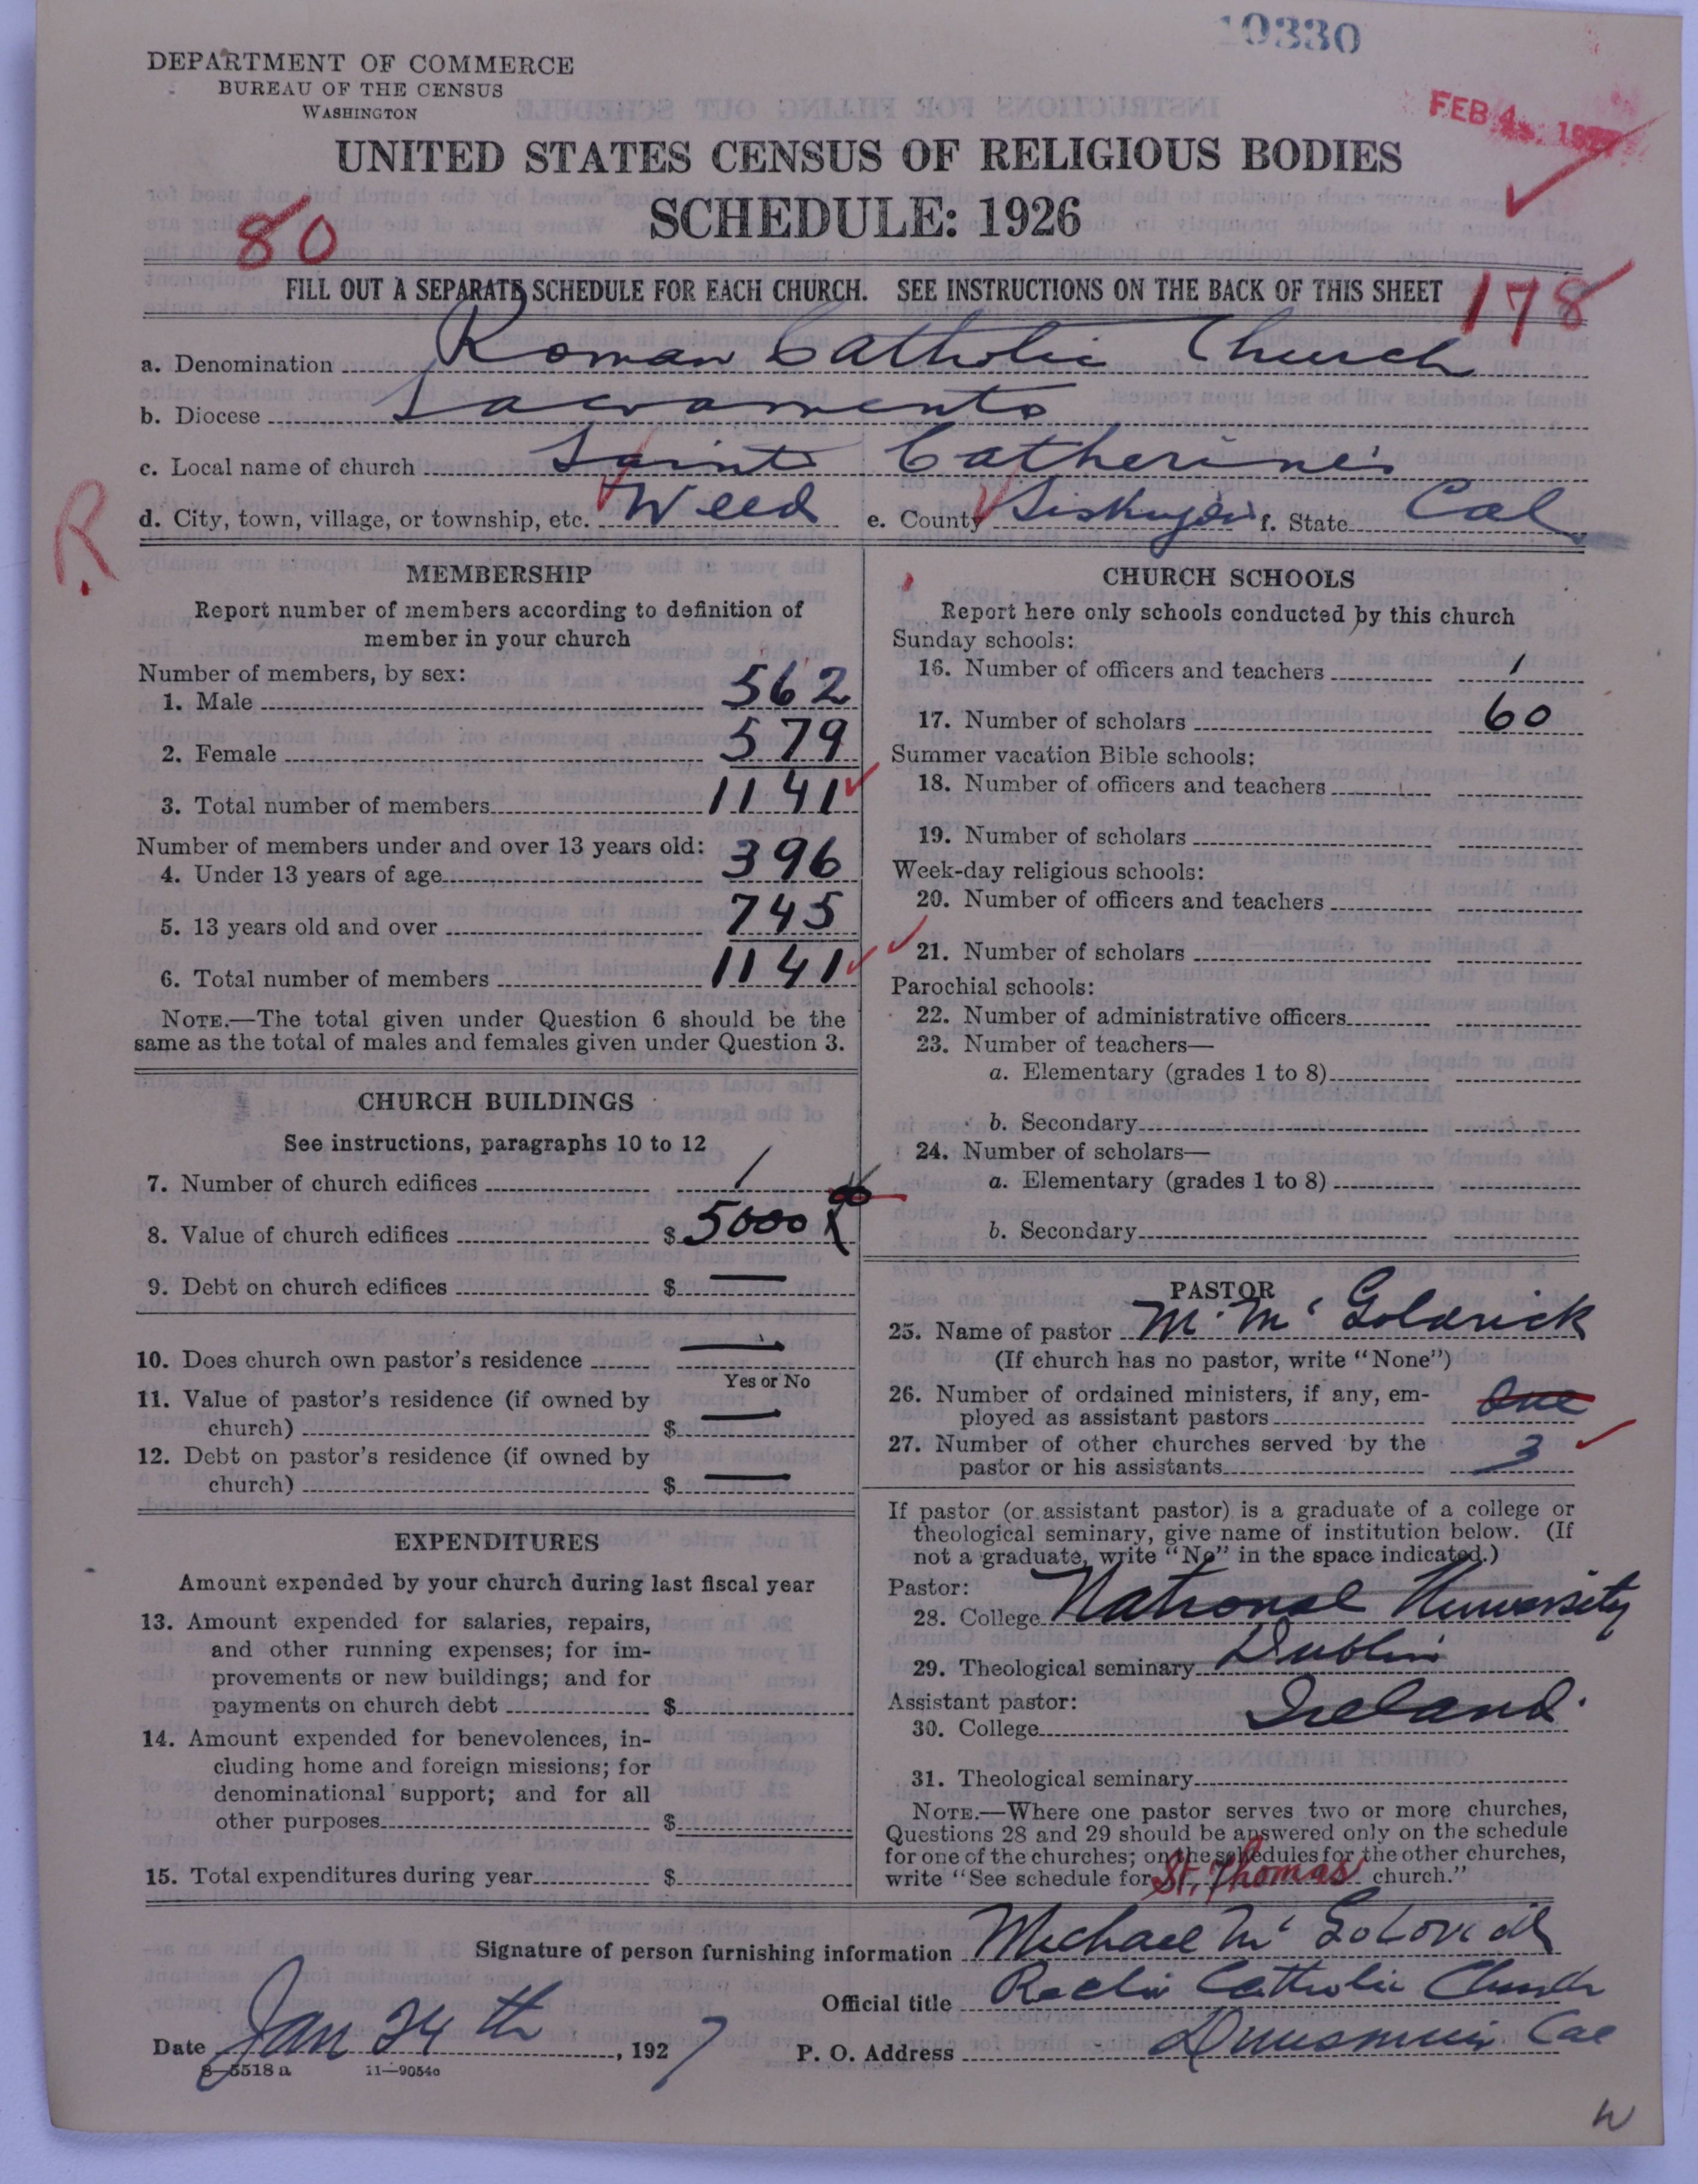 10330
DEPARTMENT OF COMMERCE
BUREAU OF THE CENSUS
WASHINGTON
FEB 4 1927
UNITED STATES CENSUS OF RELIGIOUS BODIES
SCHEDULE: 1926
80
FILL OUT A SEPARATE SCHEDULE FOR EACH CHURCH. SEE INSTRUCTIONS ON THE BACK OF THIS SHEET
178
a. Denomination Roman Catholic Church
b. Diocese Sacramento
c. Local name of church Saint Catherine's
d. City, town, village, or township, etc. Weed e. County Siskiyou f. State Cal
R
MEMBERSHIP
Report number of members according to definition of
member in your church
Number of members, by sex:
1. Male 562
2. Female 579
3. Total number of members 1141
Number of members under and over 13 years old:
4. Under 13 years of age 396
5. 13 years old and over 745
6. Total number of members 1141
NOTE.—The total given under Question 6 should be the
same as the total of males and females given under Question 3.
CHURCH BUILDINGS
See instructions, paragraphs 10 to 12
7. Number of church edifices 1
8. Value of church edifices $ 5000
9. Debt on church edifices $ —
10. Does church own pastor's residence —
Yes or No
11. Value of pastor's residence (if owned by
church) $ —
12. Debt on pastor's residence (if owned by
church) $ —
EXPENDITURES
Amount expended by your church during last fiscal year
13. Amount expended for salaries, repairs,
and other running expenses; for im-
provements or new buildings; and for
payments on church debt $
14. Amount expended for benevolences, in-
cluding home and foreign missions; for
denominational support; and for all
other purposes $
15. Total expenditures during year $
CHURCH SCHOOLS
Report here only schools conducted by this church
Sunday schools:
16. Number of officers and teachers 1
17. Number of scholars 60
Summer vacation Bible schools:
18. Number of officers and teachers
19. Number of scholars
Week-day religious schools:
20. Number of officers and teachers
21. Number of scholars
Parochial schools:
22. Number of administrative officers
23. Number of teachers—
a. Elementary (grades 1 to 8)
b. Secondary
24. Number of scholars—
a. Elementary (grades 1 to 8)
b. Secondary
PASTOR
25. Name of pastor M. McGoldrick
(If church has no pastor, write "None")
26. Number of ordained ministers, if any, em-
ployed as assistant pastors One
27. Number of other churches served by the
pastor or his assistants 3
If pastor (or assistant pastor) is a graduate of a college or
theological seminary, give name of institution below. (If
not a graduate, write "No" in the space indicated.)
Pastor:
28. College National University
29. Theological seminary Dublin
Assistant pastor:
30. College Ireland.
31. Theological seminary
NOTE.—Where one pastor serves two or more churches,
Questions 28 and 29 should be answered only on the schedule
for one of the churches; on the schedules for the other churches,
write "See schedule for St. Thomas church."
Signature of person furnishing information Michael McGoldrick
Official title Catholic Church
Date Jan 24th, 1927 P. O. Address Dunsmuir Cal
8—5518 a 11—9054a
W